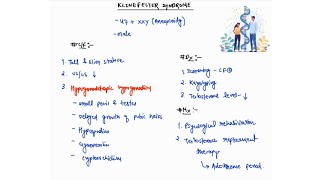 KLINEFELTER SYNDROME
- 47 + XXY (Aneuploidy)
- male
# C/F :-
1. Tall & slim stature
2. US/LS ↓
3. Hypergonadotropic hypogonadism
- small penis & testes
- Delayed growth of pubic hairs
- Hypospadias
- Gynecomastia
- Cryptorchidism
# Dx :-
1. Screening -
2. Karyotyping
3. Testosterone level - ↓
# Mx :-
1. Psychological rehabilitation
2. Testosterone replacement
therapy
↳ Adolescence period.